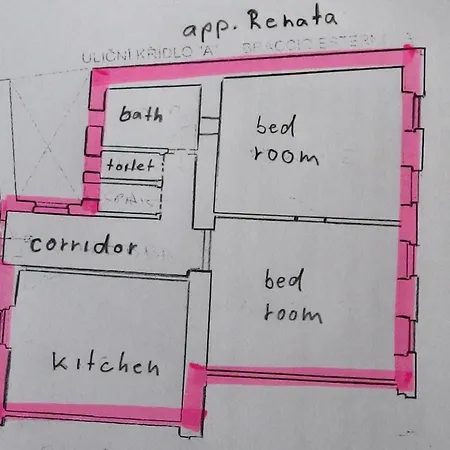 app. Renata
ULIČNÍ KŘÍDLO "A" BRACCIO ESTERNO A
bath
bed
room
toilet
corridor
bed
room
kitchen